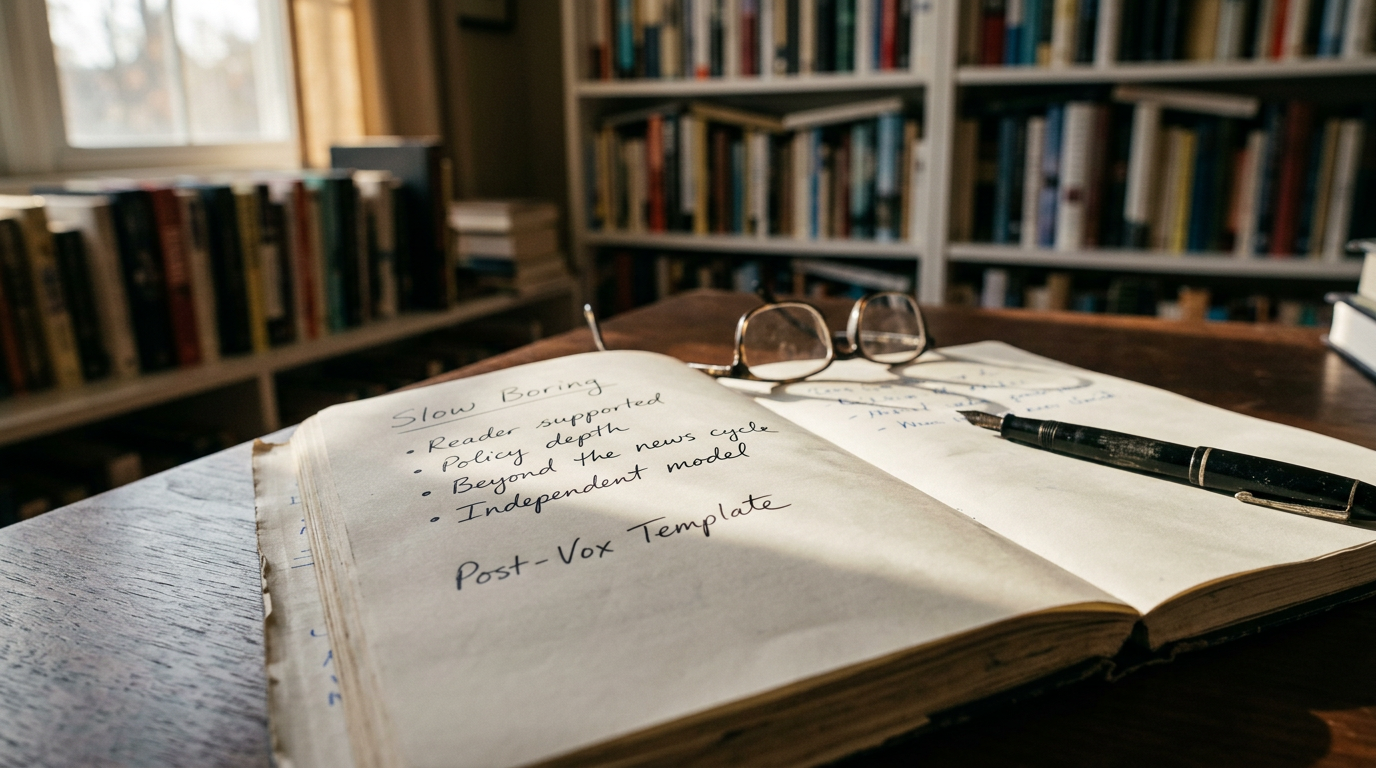 Slow Boring
• Reader supported
• Policy depth
• Beyond the news cycle
• Independent model
Post-Vox Template